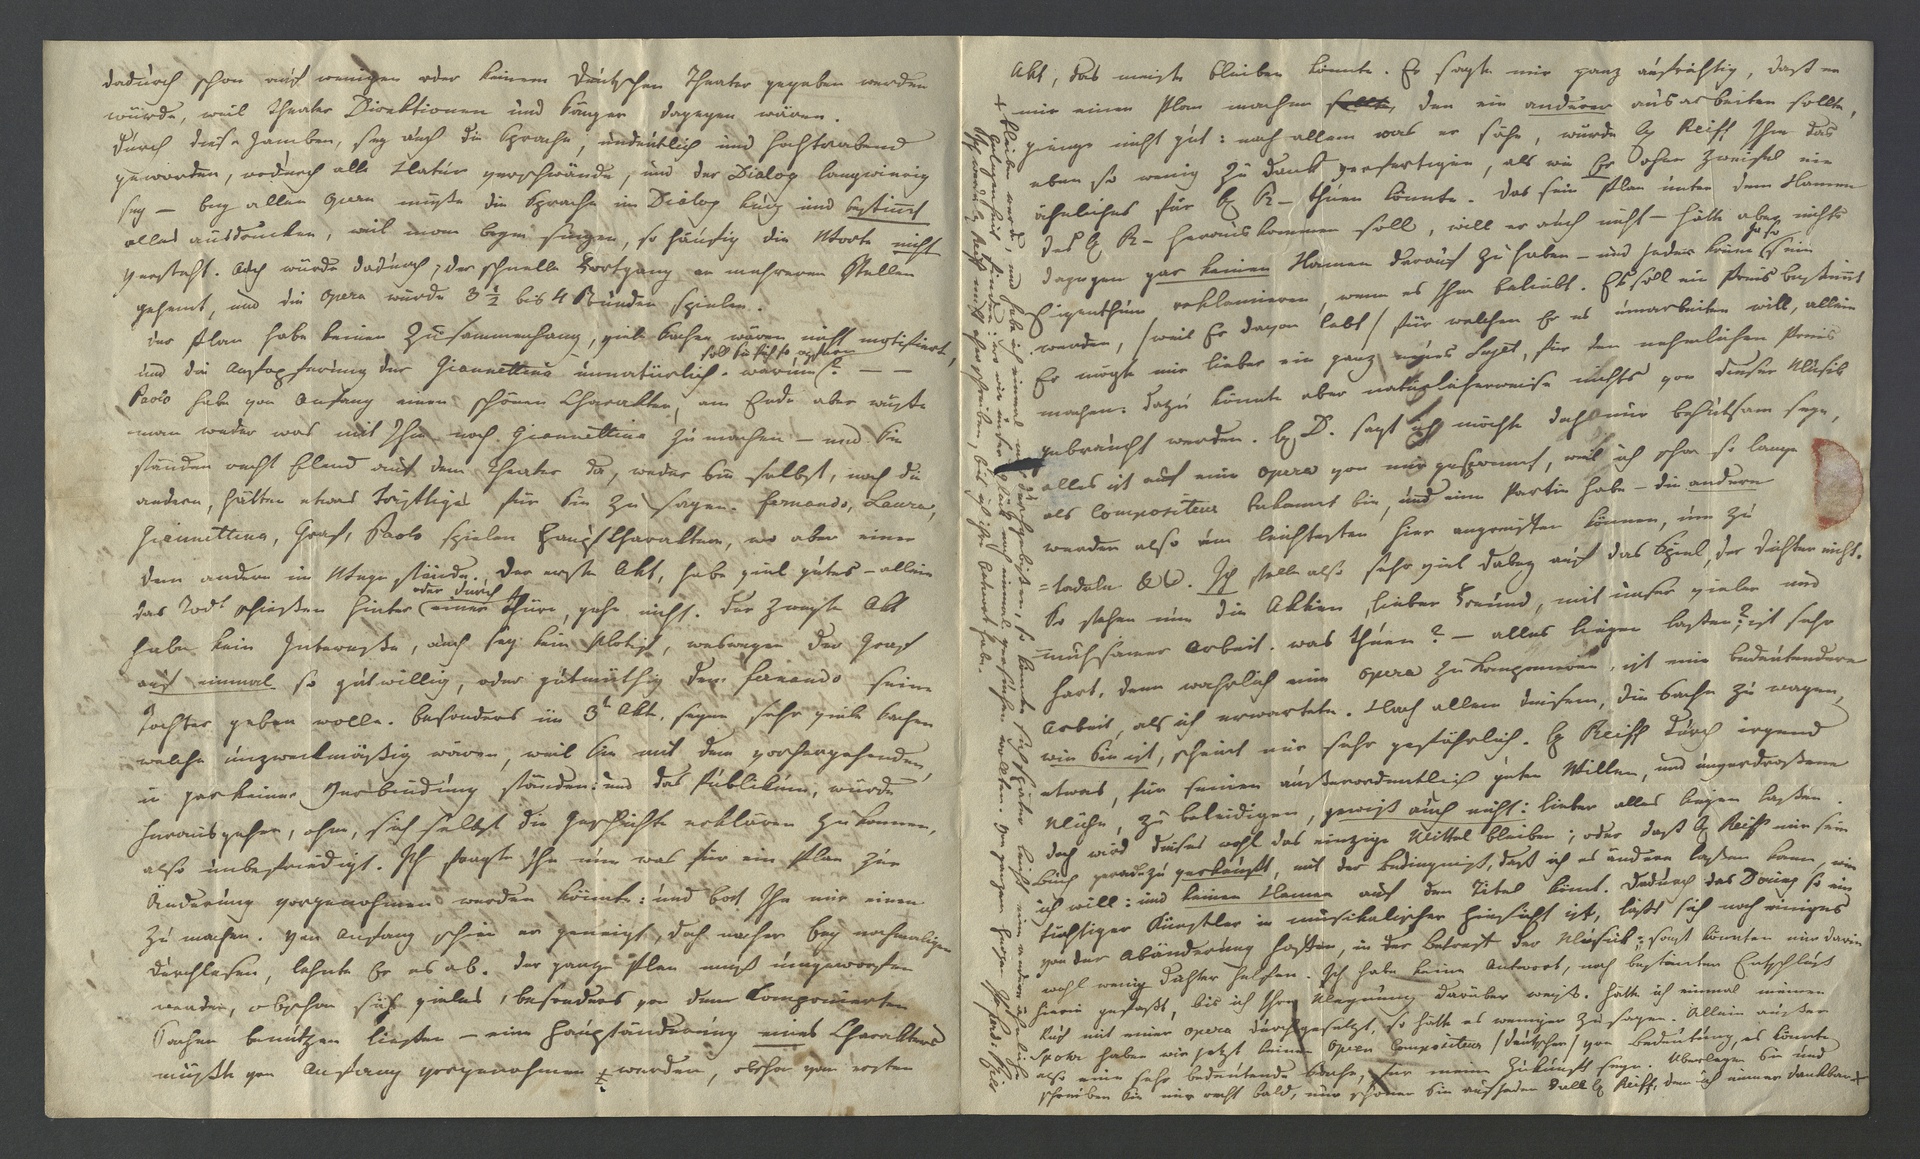 dadurch schon auf wenigen oder keinem deutschen Theater gegeben werden
würde, weil Theater Direktionen und Sänger dagegen wären.
Durch diese Jamben, sey auch die Sprache, undeutlich und hochtrabend
geworden, wodurch alle Natur verschwände, und der Dialog langwierig
sey — bey allen Opern müßte die Sprache im Dialog kurz und bestimmt
alles ausdrucken, weil man beym singen, so häufig die Worte nicht
versteht. Auch würde dadurch, der schnelle Fortgang an mehreren Stellen
gehemt, und die Opera würde 3 ½ bis 4 Stunden spielen.
der Plan habe keinen Zusammenhang, viele Sachen wären nicht motifiert,
und die Aufopferung der Giannettina unnatürlich. warum soll sie sich so opfern? — —
Paolo habe von Anfang einen schönen Charakter, am Ende aber wüßte
man weder was mit Ihm noch Giannettina zu machen — und Sie
ständen recht Elend auf dem Theater da, weder Sie selbst, noch die
andern, hätten etwas triftiges für Sie zu sagen. Fernando, Laura,
Giannettina, Graf, Paolo spielen HauptCharaktere, wo aber einer
dem andern im Wege stände. Der erste Akt, habe viel gutes — allein
das Todt schießen hinter oder durch einer Thüre, gehe nicht. Der zweyte Akt
habe kein Interesse, auch sey kein Motif, weswegen der Graf
auf einmal so gutwillig, oder gutmüthig dem Fernando seine
Tochter geben wolle. besonders im 3t Akt, seyen sehr viele Sachen
welche unzweckmäßig wären, weil Sie mit dem vorhergehenden,
in gar keiner Verbindung ständen: und das Publikum, würde
herausgehen, ohne, sich selbst die Geschichte erklären zu können,
also unbefriedigt. Ich fragte Ihn nun was für ein Plan zur
Änderung vorgenohmen werden könnte: und bat Ihn mir einen
zu machen. Von Anfang schien er geneigt, doch nacher bey nochmaligen
durchlesen, lehnte Er es ab. Der ganze Plan muß umgeworfen
werden, obschon sich vieles, besonders von dem Componierten
Sachen benützen ließen — eine Hauptänderung eines Charakters
müßte von Anfang vorgenohmen werden, obschon vom ersten
Akt, das meiste bleiben könnte. Er sagte mir ganz aufrichtig, daß er
mir einen Plan machen sollte, den ein anderer ausarbeiten sollte,
ginge nicht gut: nach allem was er sähe, würde H Reiff Ihm das
eben so wenig zu dank verfertigen, als wie Er ohne Zweifel ein
ähnliches für H R— thuen könnte. Das sein Plan unter dem Namen
des H R— herauskommen soll, will er auch nicht — hätte aber nichts
dagegen gar keinen Namen darauf zu haben — und jeder könne ja so sein
Eigenthum reklamieren, wenn es Ihm beliebt. Es soll ein Preis bestimmt
werden, /weil Er davon lebt/ für welchen Er es umarbeiten will, allein
Er mögte mir lieber ein ganz neues Sujet, für den nehmlichen Preis
machen: dazu könnte aber natürlicherweise nichts von dieser Musik
gebraucht werden. H D. sagt ich möchte doch nur behutsam seyn,
alles ist auf eine Opera von mir gespannt, weil ich schon so lange
als Compositeur bekannt bin, und eine Partie habe — die andern
werden also am leichtesten hier angreiffen können, um zu
=tadeln &c. Ich stelle also sehr viel dabey auf das Spiel, der Dichter nicht.
So stehen nun die Aktien, lieber Freund, mit unser vielen und
=mühsamer Arbeit. was thuen? — alles liegen laßen? ist sehr
hart, denn wahrlich eine Opera zu komponieren, ist eine bedeutendere
Arbeit, als ich erwartete. Nach allem diesem, die Sache zu wagen,
wie Sie ist, scheint mir sehr gefährlich. H Reiff durch irgend
etwas, für seinen außerordentlich guten Willen, und unverdroßene
Mühe, zu beleidigen, gewiß auch nicht: lieber alles liegen laßen.
doch wird dieses wohl das einzige Mittel bleiben; oder daß H Reiff mir sein
Buch geradezu verkauft, mit der Bedingniß, daß ich es ändern laßen kann, wie
ich will: und keinen Namen auf den Titel kömt. Dadurch das Döring so ein
tüchtiger Künstler in musikalischer Hinsicht ist, läßt sich noch einiges
von der Abänderung hoffen, in der Betreff der Musick: sonst könnten mir darin
wohl wenig Dichter helfen. Ich habe keine Antwort, noch bestimten Entschluß
hierin gefaßt, bis ich Ihre Meynung darüber weiß. Hätte ich einmal meinen
Ruf mit einer Opera durchgesetzt, so hätte es weniger zu sagen. Allein außer
Spohr haben wir jetzt keinen Opern Compositeur /deutschen/ von Bedeutung, es könnte
also eine sehr bedeutende Sache, für meine Zukunft seyn. Überlegen Sie und
schreiben Sie mir recht bald, nur schonen Sie auf jeden Fall H Reiff, dem ich immer dankbar
bleiben werde, und habe ich einmal mich durchgebissen, so könnte sich später leicht eine andre ähnliche
Gelegenheit finden, wo wir unser Glück noch einmal versuchen wollten.